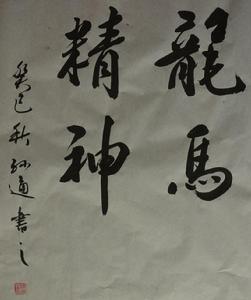 龍馬
精神
癸巳秋孙通書之